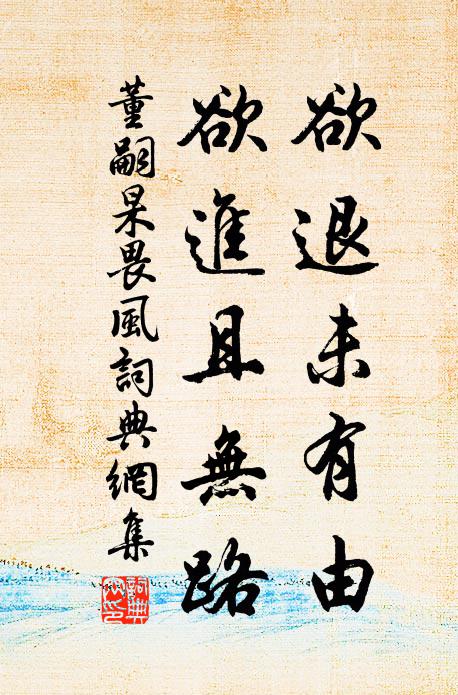 欲退未有由
欲進且無路
董嗣杲畏風詞典網集